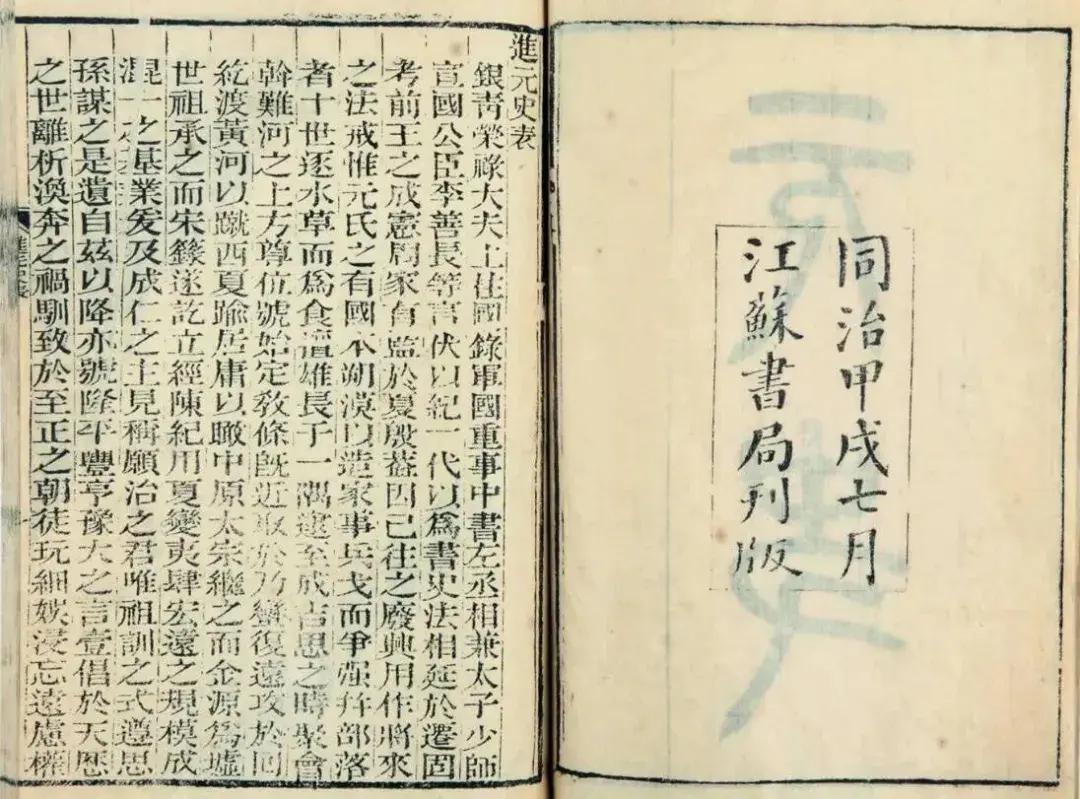 同治甲戌七月
江蘇書局刊版
進元史表
銀靑榮祿大夫上柱國錄軍國重事中書左丞相兼太子少師
宣國公臣李善長等言伏以紀一代以爲書史法相延於遷固
考前王之成憲周家有監於夏殷葢因已往之廢興用作將來
之法戒惟元氏之有國本朔漠以造家事兵戈而爭强幷部落
者十世逐水草而爲食擅雄長于一隅逮至成吉思之時聚會
斡難河之上方尊位號始定敎條旣近取於乃蠻復遠攻於回
紇渡黃河以蹴西夏踰居庸以瞰中原太宗繼之而金源爲墟
世祖承之而宋籙遂訖立經陳紀用夏變夷肆宏遠之規模成
混一之基業爰及成仁之主見稱願治之君唯祖訓之式遵思
孫謀之是遺自兹以降亦號隆平豐亨豫大之言壹倡於天厯
之世離析渙奔之禍馴致於至正之朝徒玩細娛浸忘遠慮權